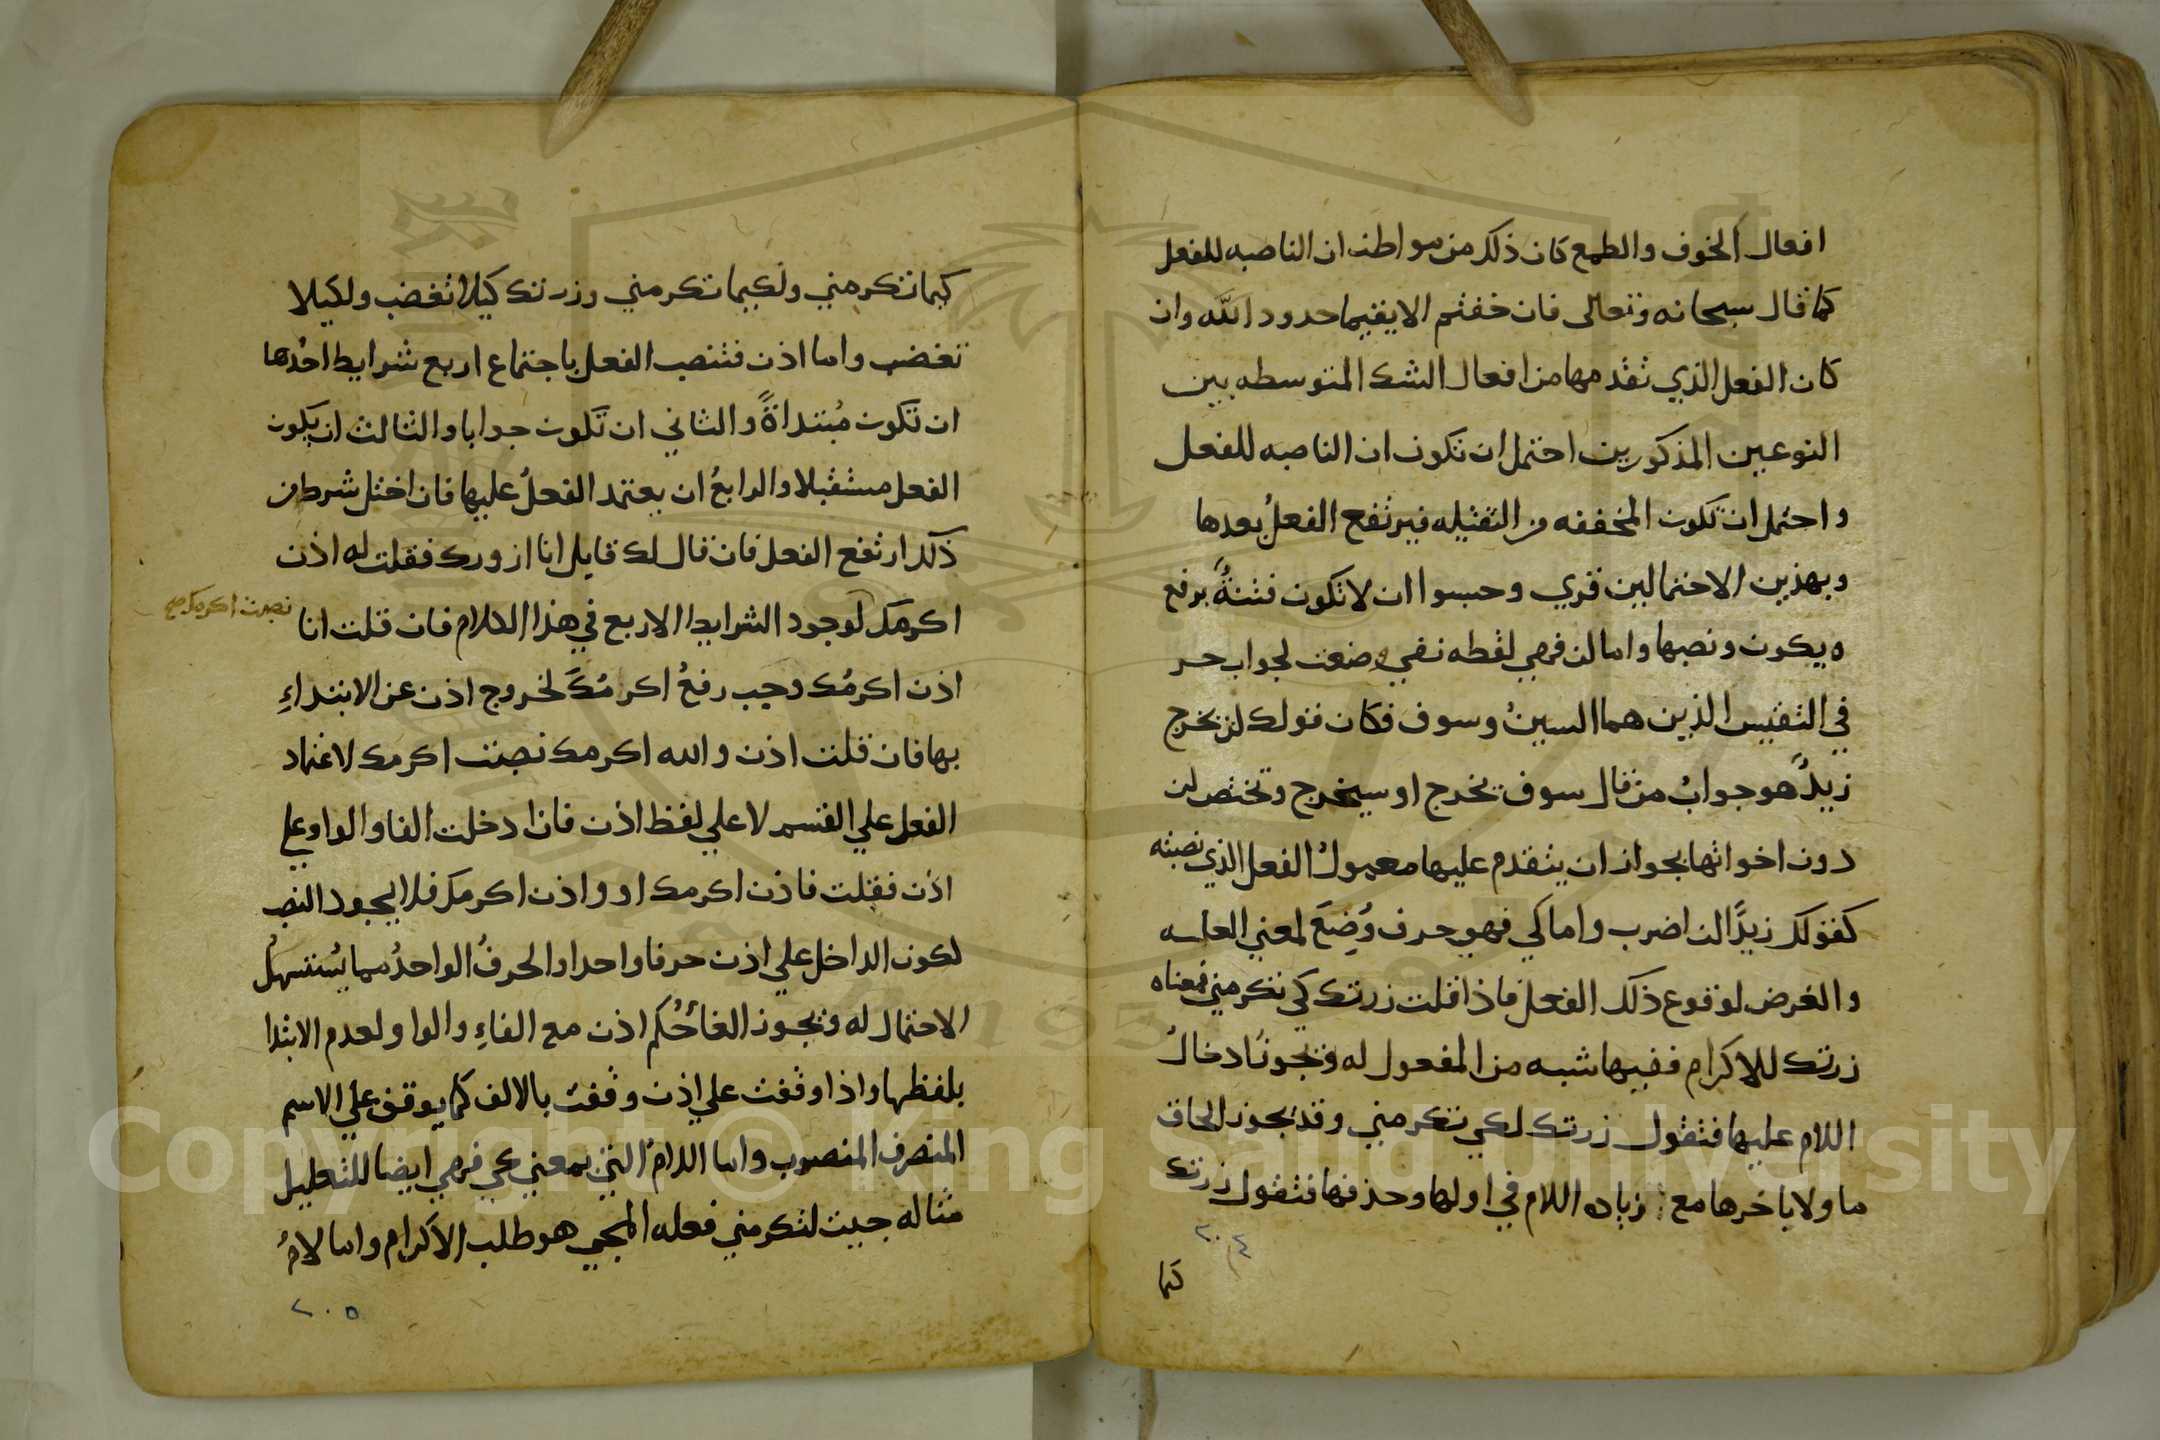 افعال الخوف والطمع كان ذلك من مواطن ان الناصبه للفعل
كما قال سبحانه وتعالى فان خفتم الا يقيما حدود الله وان
كان الفعل الذي تقدمها من افعال الشك المتوسطه بين
النوعين المذكورين احتمل ان تكون ان الناصبه للفعل
واحتمل ان تكون المخففه من الثقيله فيرتفع الفعلُ بعدها
وبهذين الاحتمالين قري وحسبوا ان لا تكون فتنةٌ برفع
ه يكون ونصبها واما لن فهي لفظه نفي وضعت لجواب حر
في التنفيس الذين هما السينُ وسوف فكان قولك لن يخرج
زيدٌ هو جوابُ من قال سوف يخرج او سيخرج وتختص لن
دون اخواتها بجواز ان يتقدم عليها معمولُ الفعل الذي نصبته
كقولك زيدًا لن اضرب واما كي فهي حرف وُضِعَ لمعني العله
والغرض لوقوع ذلك الفعل فاذا قلت زرتك كي تكرمني فمعناه
زرتك للاكرام ففيها شبه من المفعول له ويجوز ادخالُ
اللام عليها فتقول زرتك لكي تكرمني وقد يجوز الحاق
ما ولا باخرها مع زياده اللام في اولها وحذفها فتقول زرتك
٢٠٤
كيما
كيما تكرمني ولكيما تكرمني وزرتك كيلا تغضب ولكيلا
تغضب واما اذن فتنصب الفعل باجتماع اربع شرايط احدها
ان تكون مُبتداةً والثاني ان تكون جوابا والثالث ان يكون
الفعل مستقبلا والرابعُ ان يعتمد الفعلُ عليها فان اختل شرط من
ذلك ارتفع الفعل فان قال لك قايل انا ازورك فقلت له اذن
اكرمك لوجود الشرايط الاربع في هذا الكلام فان قلت انا
نصبت اكرمك صح
اذن اكرمُك وجب رفعُ اكرمُك لخروج اذن عن الابتداءِ
بها فان قلت اذن والله اكرمك نصبت اكرمك لاعتماد
الفعل علي القسم لا علي لفظ اذن فان دخلت الفا والواو علي
اذن فقلت فاذن اكرمك او واذن اكرمك فلا يجود النصب
لكون الداخل علي اذن حرفا واحدا والحرفُ الواحدُ مما يُستسهل
الاحتمال له ويجوز الغأ حُكم اذن مع الفاءِ والواو لعدم الابتدا
بلفظها واذا وقفت علي اذن وقفت بالالف كما يوقف علي الاسم
المنصرف المنصوب واما اللامُ التي بمعني كي فهي ايضا للتعليل
مثاله جيت لتكرمني فعله المجي هو طلب الاكرام واما لامُ
٢٠٥